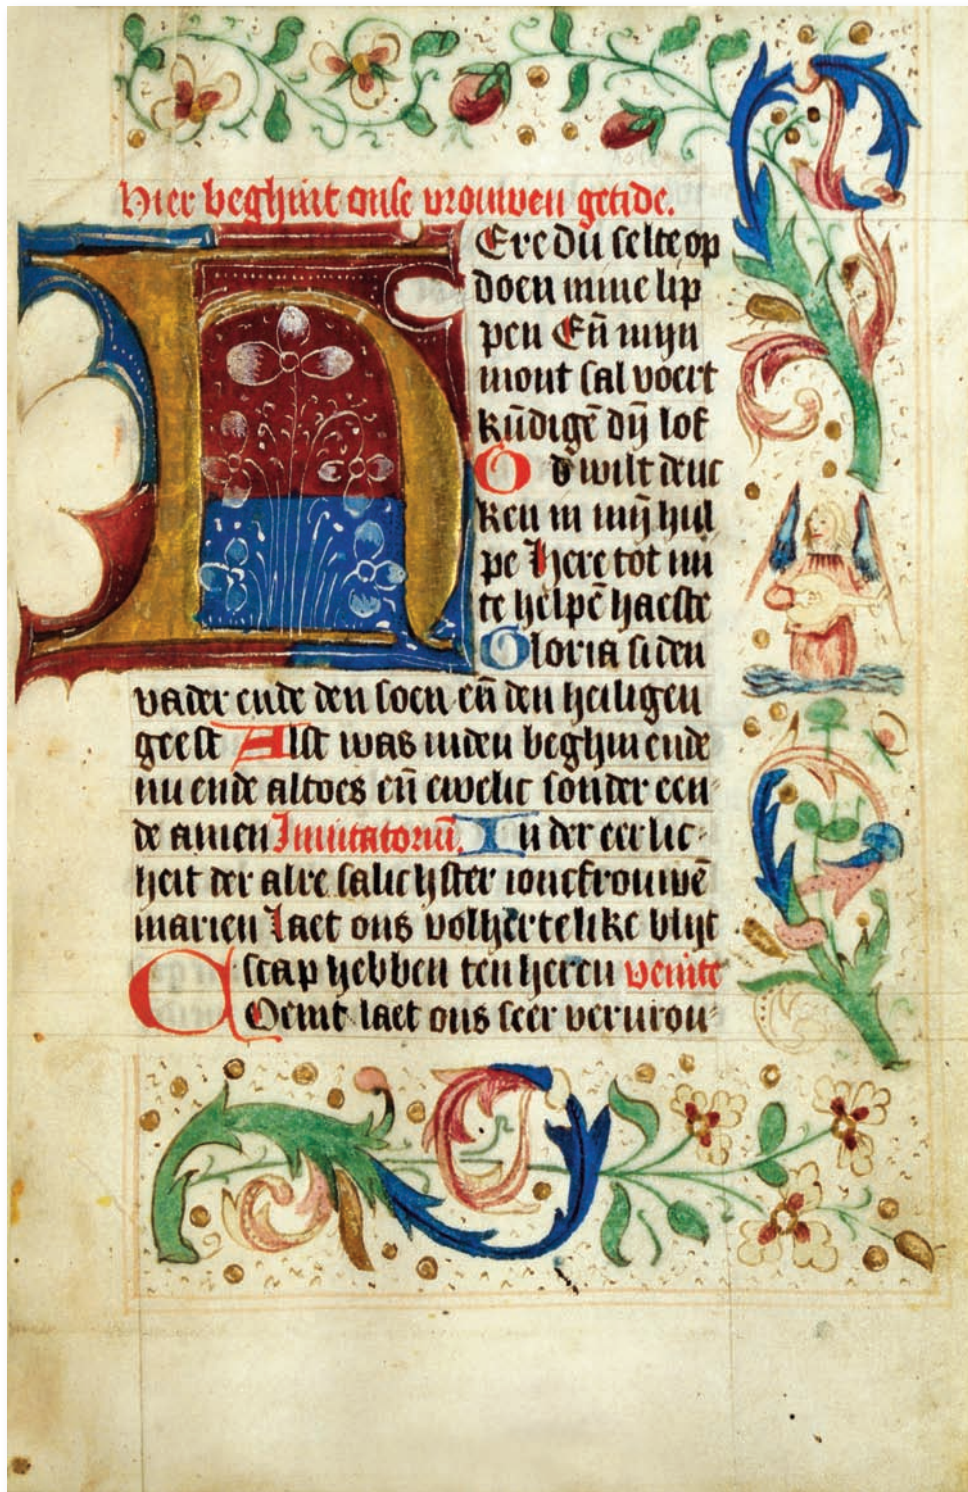 Hier beghint onse vrouwen getide.
HEre du selte op
doen mine lip
pen Eñ mijn
mont sal voert
kūdigē dijn lof
God wilt denc
ken in mijn hul
pe Here tot mi
te helpē haeste
Gloria si den
vader ende den soen eñ den heiligen
geest Alst was inden beghin ende
nu ende altoes eñ ewelic sonder een
de amen Inuitatoriū. In der eerlic-
heit der alre salichster ioncfrouwē
marien laet ons volhertelike blijt
scap hebben ten heren venite
Coemt laet ons seer vervrou-